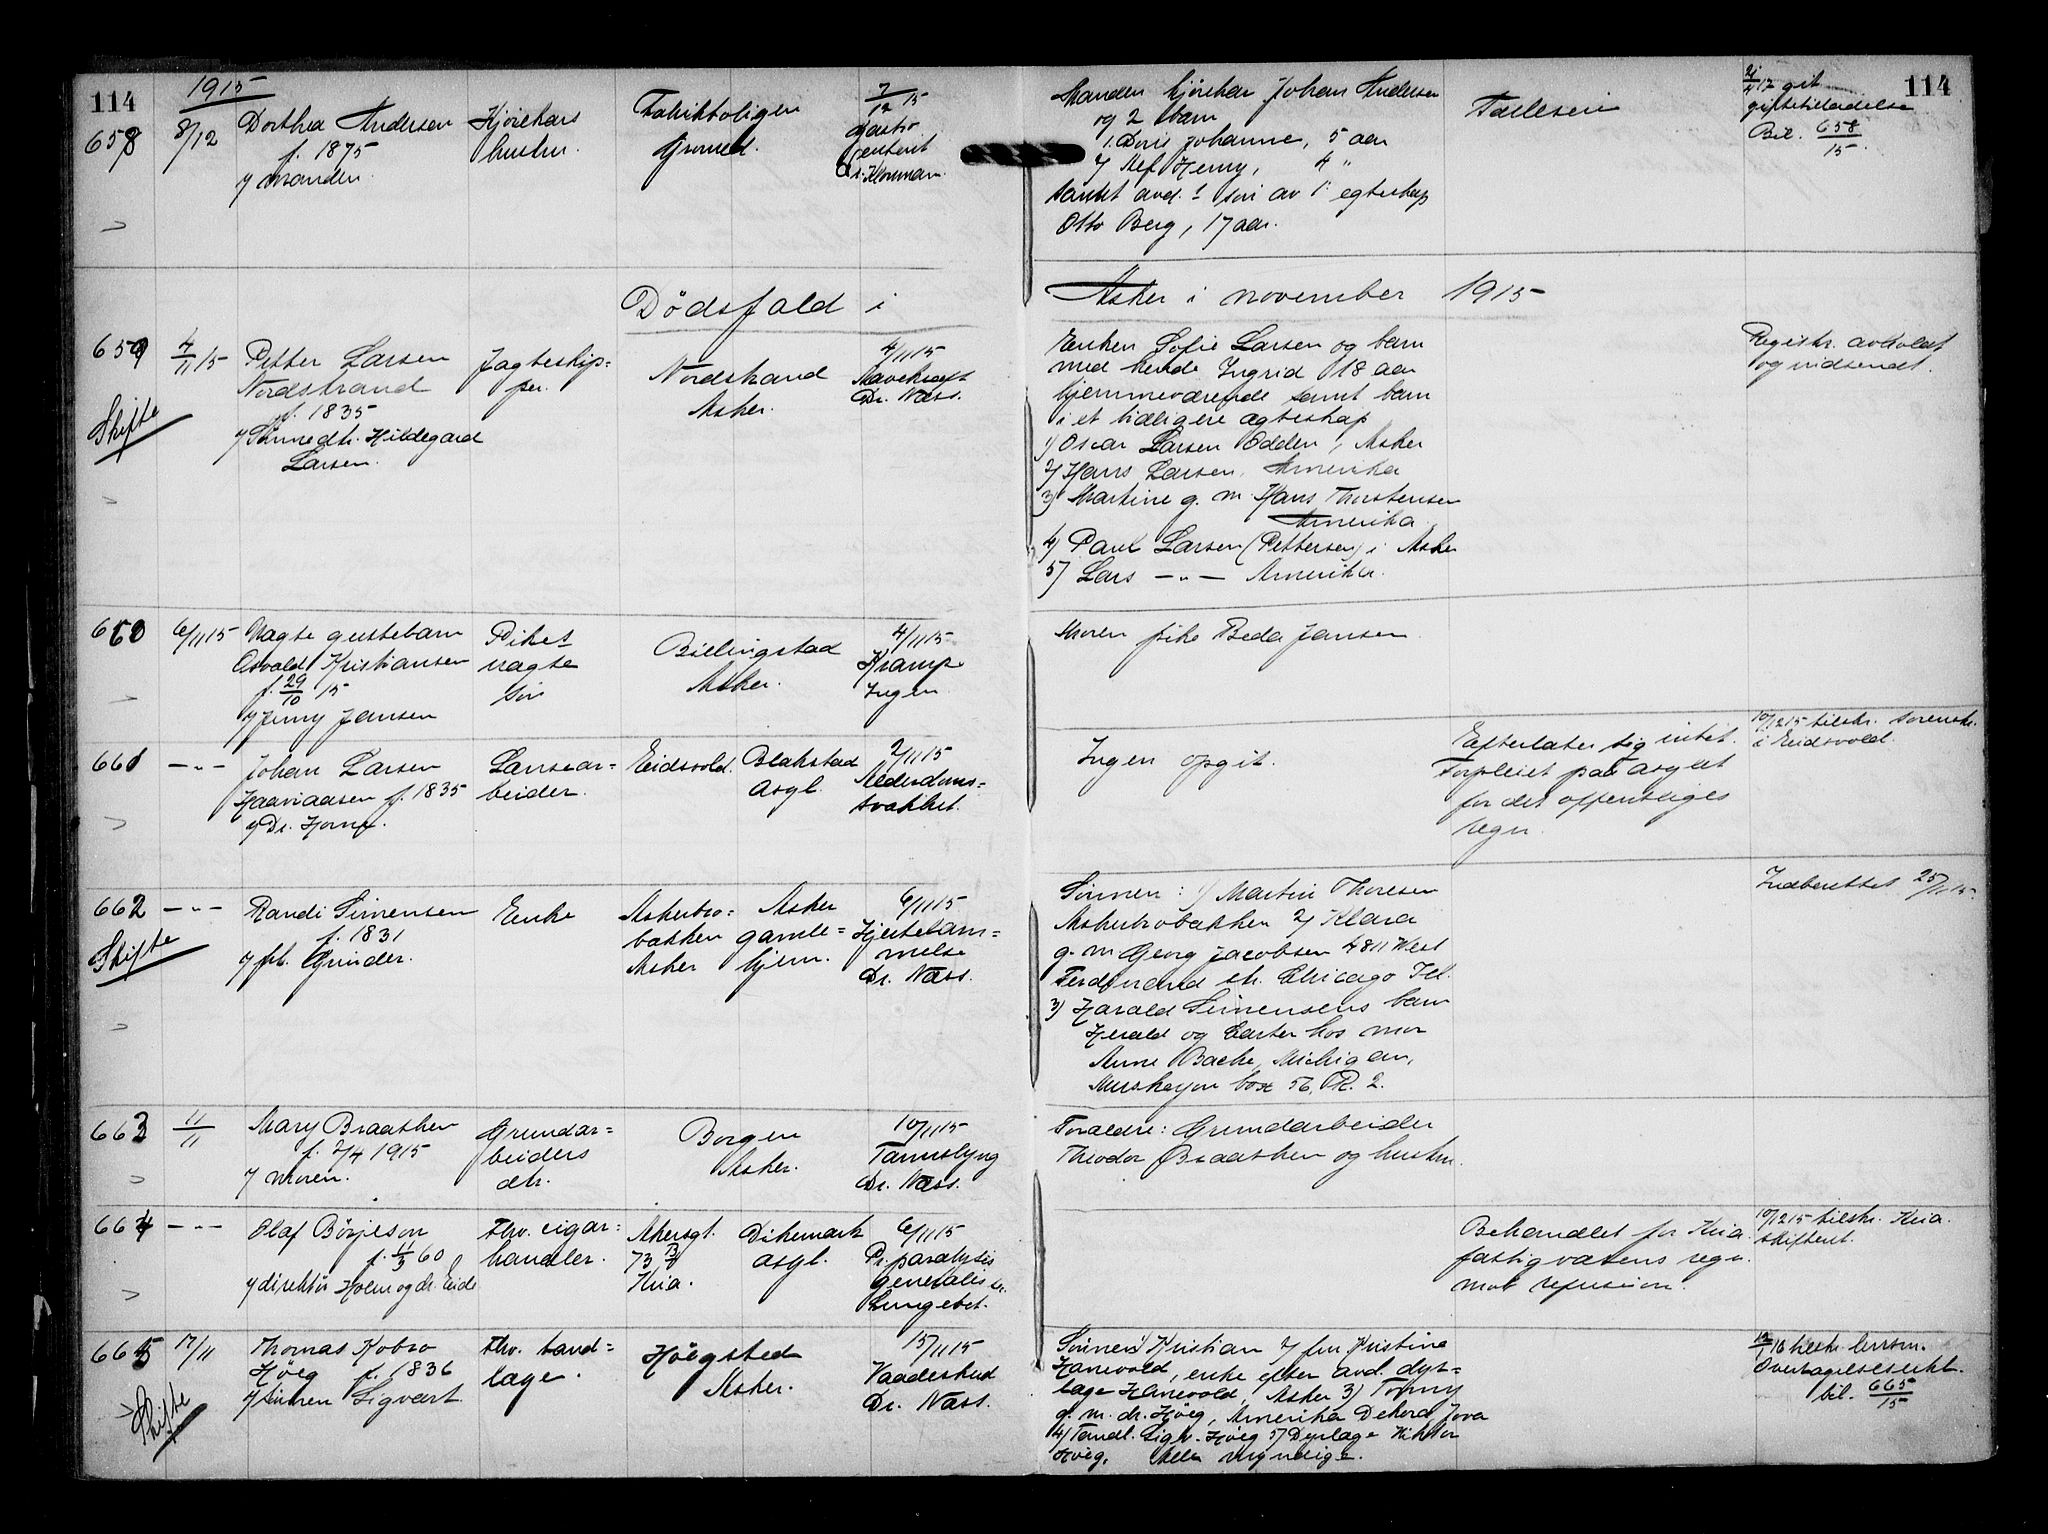 114
1915
114
658
8/12
Dorthea Andersen
f. 1875
v/ manden.
Kjørekars
hustru.
Fabrikboligen
Grorud.
7/12 15
Gastro
enterit
Dr.
Manden kjørekar Johan Andersen
og 2 barn
1. Doris Johanne, 5 aar
2/ Alf Henry, 4 "
samt avd. 1 søn av 1' egteskap
Otto Berg, 17 aar.
Fælleseie
17 git
giftetilladelse
Bil. 658/15.
Dødsfald i Asker i november 1915
659
4/11 15
Skifte
Petter Larsen
Nordstrand
f. 1835
v/ Sønnedtr. Hildegard
Larsen.
Jagteskip=
per.
Nordstrand
Asker.
4/11 15
Mavekræft
Dr. Næss.
Enken Sofie Larsen og barn
med hende Ingrid 18 aar
hjemmeværende samt barn
i et tidligere ægteskap
1) Oscar Larsen Odden, Asker
2/ Hans Larsen, Amerika
3) Martine g. m. Hans Thorstensen
Amerika.
4) Paul Larsen (Pettersen) i Asker
5) Lars —"— Amerika.
Registr. avholdt
og indsendt.
660
6/11 15
Uægte guttebarn
Osvald Kristiansen
f. 29/10 15
v/ Jenny Jansen
Pikes
uægte
søn
Billingstad
Asker.
4/11 15
Krampe
Ingen
Moren pike Beda Jansen
661
—"—
Johan Larsen
Haaviaasen f. 1835
v/ Dr. Horne.
Løsar=
beider.
Eidsvold.
Blakstad
asyl.
2/11 15
Alderdoms=
svakhet.
Ingen opgit.
Efterlater sig intet.
Forpleiet paa asylet
for det offentliges
regn.
10/12 15 tilskr. sorenskr.
i Eidsvold.
662
—"—
Skifte
Randi Simensen
f. 1831
v/ fht. Grinder.
Enke
Askerbro=
bakken
Asker
Asker
gamle=
hjem.
6/11 15
Hjertelam=
melse
Dr. Næss.
Sønnen: 1) Martin Thoresen
Askerbrobakken 2/ Klara
g. m. Georg Jacobsen 4811 West
Ferdinand str. Chicago Ill.
3) Harald Simensens barn
Herald og Carter hos mor
Anne Bache, Michigan,
Muskegon box 56, R. 2.
Indberettet 25/11 15.
663
11/11
Mary Braathen
f. 2/4 1915
v/ moren.
Grundar=
beiders
dtr.
Borgen
Asker.
10/11 15
Tarmslyng
Dr. Næss.
Foraldre: Grundarbeider
Theodor Braathen og hustru.
664
—"—
Olaf Børjeson
f. 11/3 60
v/ direktør Holm og dr. Eide
Fhv. cigar=
handler.
Akersgt.
73
Kria.
Dikemark
asyl.
6/11 15
Pr. paralysis
generalis
Lungebet.
Behandlet for Kria.
fattigvæsens regn.
mot refusion.
10/12 15 tilskr. Kria.
skifteret.
665
17/11
Skifte
Thomas Kobro
Høeg f. 1836
v/ sønnen Sigvart.
Fhv. tand=
læge.
Høegsted
Asker.
15/11 15
Vaadeskud
Dr. Næss.
Sønnen 1) Kristian 2/ fru Kristine
Hanevold, enke efter avd. dyr=
læge Hanevold, Asker 3) Tonny
g. m. dr. Høeg, Amerika Dekora Jova
4) Tandl. Sigv. Høeg 5) Dyrlæge Viktor
Høeg. Alle myndige.
Overtagelseserkl.
bil. 665/15